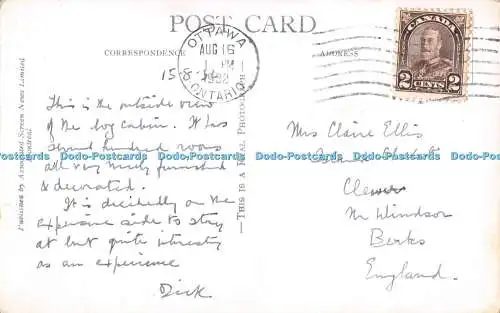 POST CARD
CORRESPONDENCE
ADDRESS
OTTAWA
AUG 16
1 PM
1932
ONTARIO
CANADA
2 CENTS 2
15-8-32
This is the outside view
of the log cabin. It has
several hundred rooms
all very nicely furnished
& decorated.
It is decidedly on the
expensive side to stay
at but quite interesting
as an experience
Dick
Mrs Claire Ellis
Clewer
Nr Windsor
Berks
England.
Published by Associated Screen News Limited
Montreal
—THIS IS A REAL PHOTOGRAPH—
Dodo-Postcards Dodo-Postcards Dodo-Postcards Dodo-Postcards Dodo-Postcards Dodo-Postcards